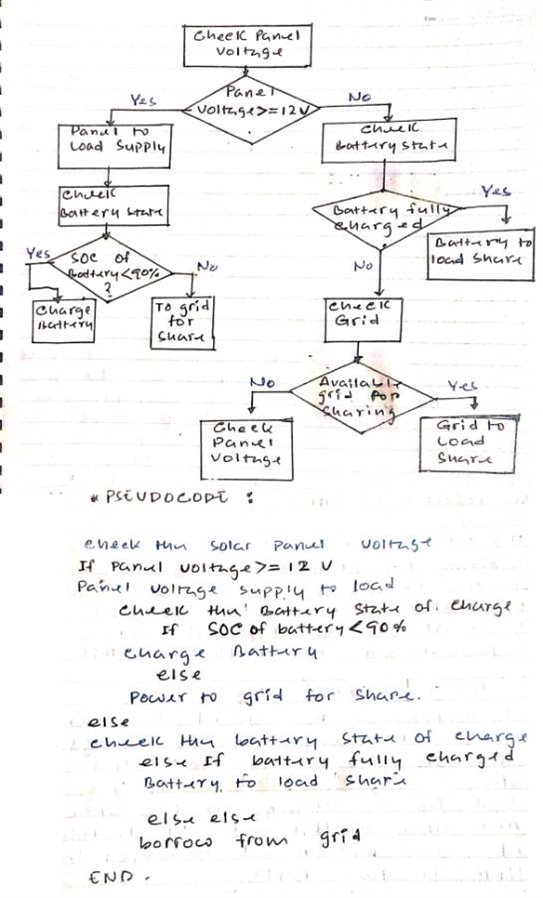 Check Panel
Voltage
Panel
Voltage>=12V
Yes
No
Panel to
Load Supply
Check
Battery State
Check
Battery State
Battery fully
charged
Yes
Battery to
load share
Yes
SOC of
Battery<90%
?
No
No
Charge
Battery
To grid
for
share
Check
Grid
No
Available
grid for
sharing
Yes
Check
Panel
Voltage
Grid to
Load
Share
* PSEUDOCODE :
check the solar panel voltage
If Panel voltage>=12 V
Panel voltage supply to load
check the Battery state of charge
If SOC of battery<90%
charge Battery
else
Power to grid for share.
else
check the battery state of charge
else If battery fully charged
Battery to load share
else else
borrow from grid
END.